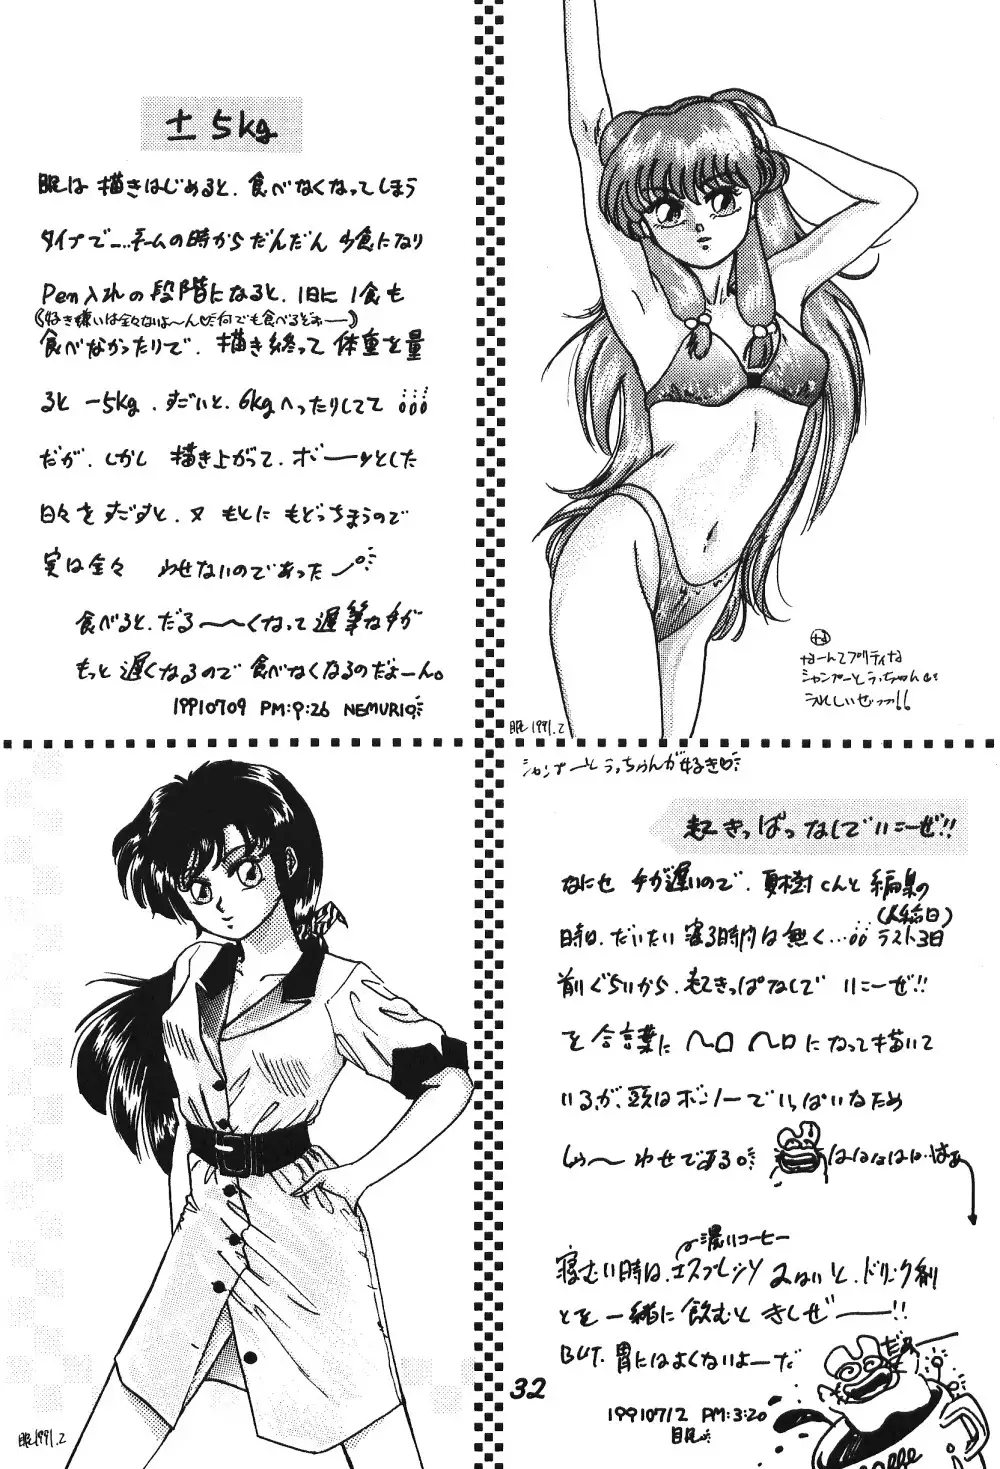 ± 5kg
眠は 描きはじめると、食べなくなってしまう
タイプで…ネームの時からだんだん 少食になり
Pen入れの段階になると、1日に 1食も
(好き嫌いは全々ないよ〜ん♡何でも食べるぞォーー)
食べなかったりで、描き終って 体重を量
ると −5kg、すごいと、6kgへったりしてて
だが、しかし 描き上がって、ボーッとした
日々を すごすと、又 もとに もどっちまうので
実は全々 やせないのであった
食べると、だる〜〜くなって 遅筆な手が
もっと 遅くなるので 食べなくなるのだよーん。
19910709 PM:9:26 NEMURI
なーんてプリティな
シャンプーとうっちゃん
うれしいぜっっ!!
眠 1991.2
シャンプーとうっちゃんが好き♡
起きっぱなしでいこーぜ!!
なにせ 手が遅いので、夏樹くんと 編集の
(〆切日)
時は、だいたい 寝る時間は 無く… ラスト3日
前ぐらいから、起きっぱなしで いこーぜ!!
を 合言葉に ヘロ ヘロ になって 描いて
いるが、頭は ボンノーで いっぱいなため
し〜 やせである。
はははははは…はぁ
濃いコーヒー
寝むい時は、エスプレッソ みないと、ドリンク剤
とを 一緒に 飲むと きしぜーー!!
BUT、胃にはよくないよーだ
19910712 PM:3:20
眠
32
眠 1991.2